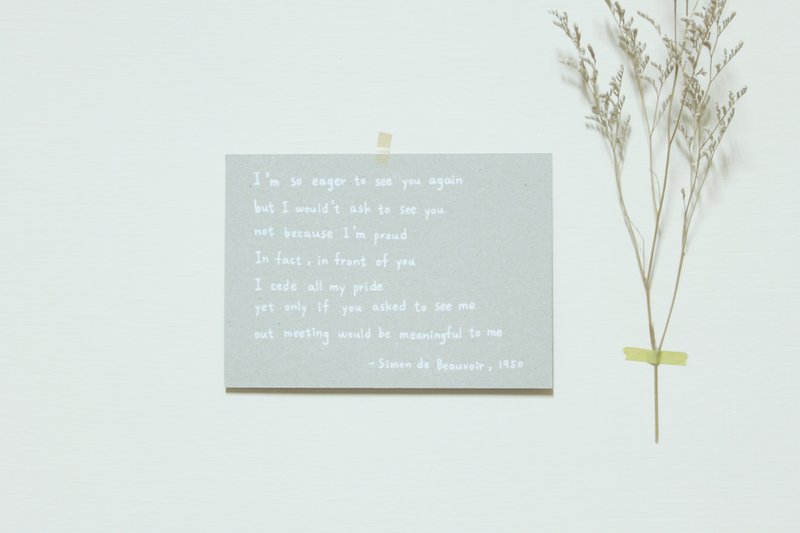 I'm so eager to see you again
but I would't ask to see you
not because I'm proud
In fact, in front of you
I cede all my pride
yet only if you asked to see me
out meeting would be meaningful to me
-Simon de Beauvoir, 1950